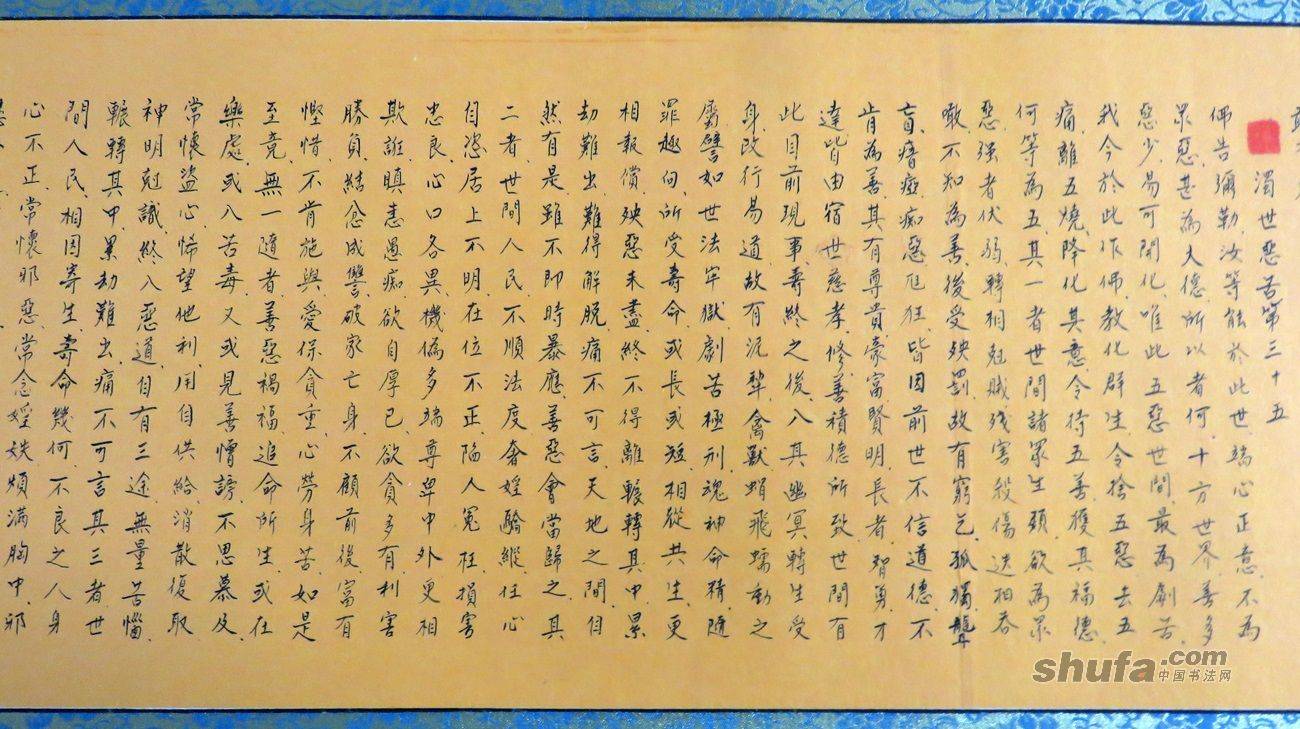 濁世惡苦第三十五
佛告彌勒汝等能於此世端心正意不為
眾惡甚為大德所以者何十方世界善多
惡少易可開化唯此五惡世間最為劇苦
我今於此作佛教化群生令捨五惡去五
痛離五燒降化其意令持五善獲其福德
何等為五其一者世間諸眾生類欲為眾
惡强者伏弱轉相剋賊殘害殺傷迭相吞
噉不知為善後受殃罰故有窮乞孤獨聾
盲瘖瘂痴惡尪狂皆因前世不信道德不
肯為善其有尊貴豪富賢明長者智勇才
達皆由宿世慈孝修善積德所致世間有
此目前現事壽終之後入其幽冥轉生受
身改行易道故有泥犁禽獸蜎飛蠕動之
屬譬如世法牢獄劇苦極刑魂神命精隨
罪趣向所受壽命或長或短相從共生更
相報償殃惡未盡終不得離輾轉其中累
劫難出難得解脫痛不可言天地之間自
然有是雖不即時暴應善惡會當歸之其
二者世間人民不順法度奢婬驕縱任心
自恣居上不明在位不正陷人冤枉損害
忠良心口各異機偽多端尊卑中外更相
欺誑瞋恚愚痴欲自厚己欲貪多有利害
勝負結忿成讐破家亡身不顧前後富有
慳惜不肯施與愛保貪重心勞身苦如是
至竟無一隨者善惡禍福追命所生或在
樂處或入苦毒又或見善憎謗不思慕及
常懷盜心悕望他利用自供給消散復取
神明剋識終入惡道自有三途無量苦惱
輾轉其中累劫難出痛不可言其三者世
間人民相因寄生壽命幾何不良之人身
心不正常懷邪惡常念婬妷煩滿胸中邪
shufa.com
中国书法网